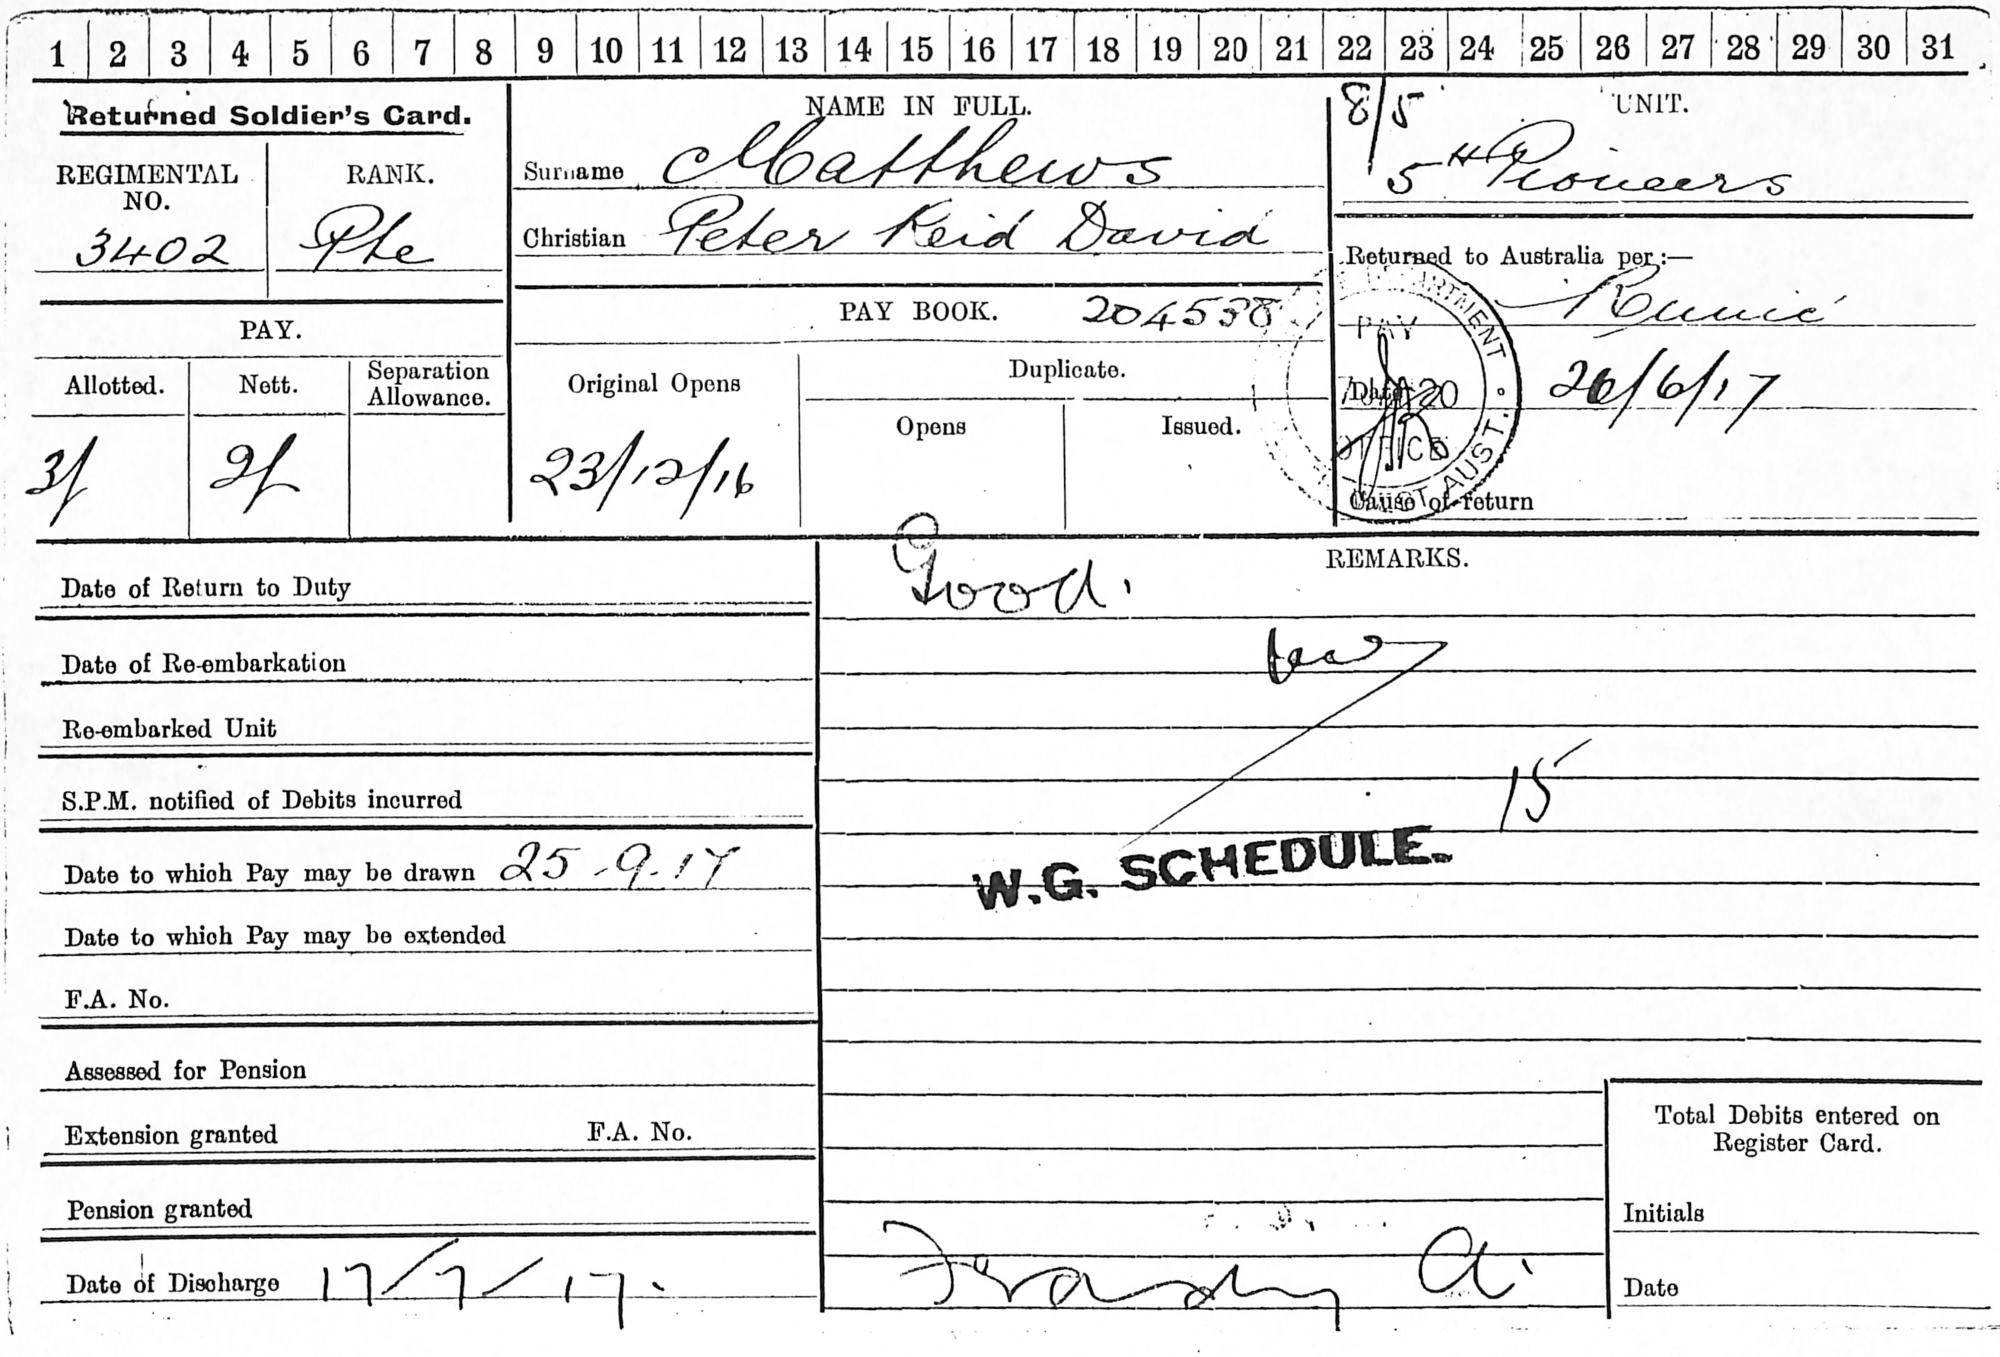 1 2 3 4 5 6 7 8 9 10 11 12 13 14 15 16 17 18 19 20 21 22 23 24 25 26 27 28 29 30 31
Returned Soldier's Card.
REGIMENTAL NO.
3402
RANK.
Pte
NAME IN FULL.
Surname Matthews
Christian Peter Reid David
8/5
UNIT.
5th Pioneers
Returned to Australia per:—
Runic
Date 26/6/17
Cause of return
DEPARTMENT
PAY
20
OFFICE
AUST.
PAY.
Allotted.
3/
Nett.
2/
Separation Allowance.
PAY BOOK. 204538
Original Opens
23/12/16
Duplicate.
Opens
Issued.
Date of Return to Duty
Date of Re-embarkation
Re-embarked Unit
S.P.M. notified of Debits incurred
Date to which Pay may be drawn 25.9.17
Date to which Pay may be extended
F.A. No.
Assessed for Pension
Extension granted F.A. No.
Pension granted
Date of Discharge 17/7/17.
REMARKS.
Good.
15
W.G. SCHEDULE.
A.
Total Debits entered on
Register Card.
Initials
Date